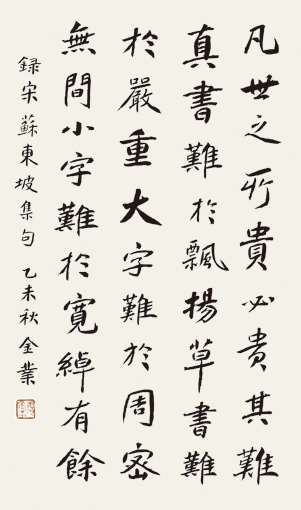 凡世之所貴必貴其難
真書難於飄揚草書難
於嚴重大字難於周密
無間小字難於寬綽有餘
録宋蘇東坡集句乙未秋金業